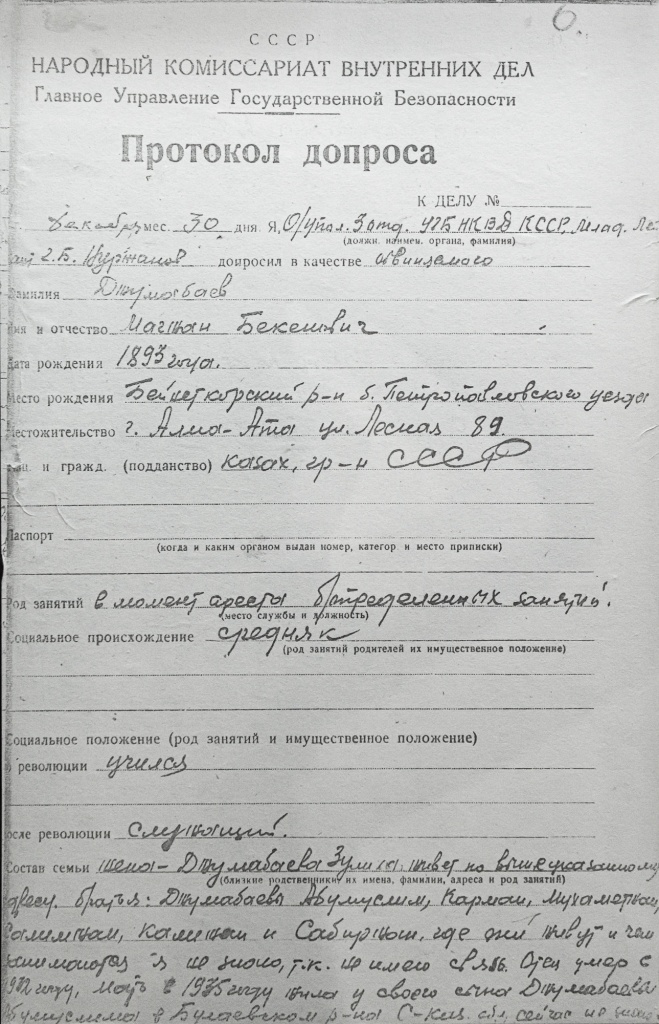 6.
СССР
НАРОДНЫЙ КОМИССАРИАТ ВНУТРЕННИХ ДЕЛ
Главное Управление Государственной Безопасности
Протокол допроса
К ДЕЛУ №
Декабря мес. 30 дня Я, О/упол. 3 отд. УГБ НКВД КССР, Млад. Ле
(должн. наимен. органа, фамилия)
г.Б. Нуржанов допросил в качестве обвиняемого
Фамилия Джумабаев
Имя и отчество Магжан Бекешович
Дата рождения 1893 года.
Место рождения Бейнеткорский р-н б. Петропавловского уезда
Местожительство г. Алма-Ата ул. Лесная 89.
Нац. и гражд. (подданство) казах, гр-н СССР
Паспорт
(когда и каким органом выдан номер, категор. и место приписки)
Род занятий в момент ареста без определенных занятий.
(место службы и должность)
Социальное происхождение средняк
(род занятий родителей их имущественное положение)
Социальное положение (род занятий и имущественное положение)
революции учился
осле революции служащий.
Состав семьи жена - Джумабаева Зулиха живет по вышеуказанному
(близкие родственники, их имена, фамилии, адреса и род занятий)
адресу. братья: Джумабаевы Абумуслим, Карман, Мухаметжан,
Салимжан, Калижан и Сабиржан, где они живут и чем
занимаются я не знаю, т.к. не имею связь. Отец умер в
году, мать в 1935 году жила у своего сына Джумабаева
Абумуслима в Булаевском р-на С-Каз. обл, сейчас не знаю